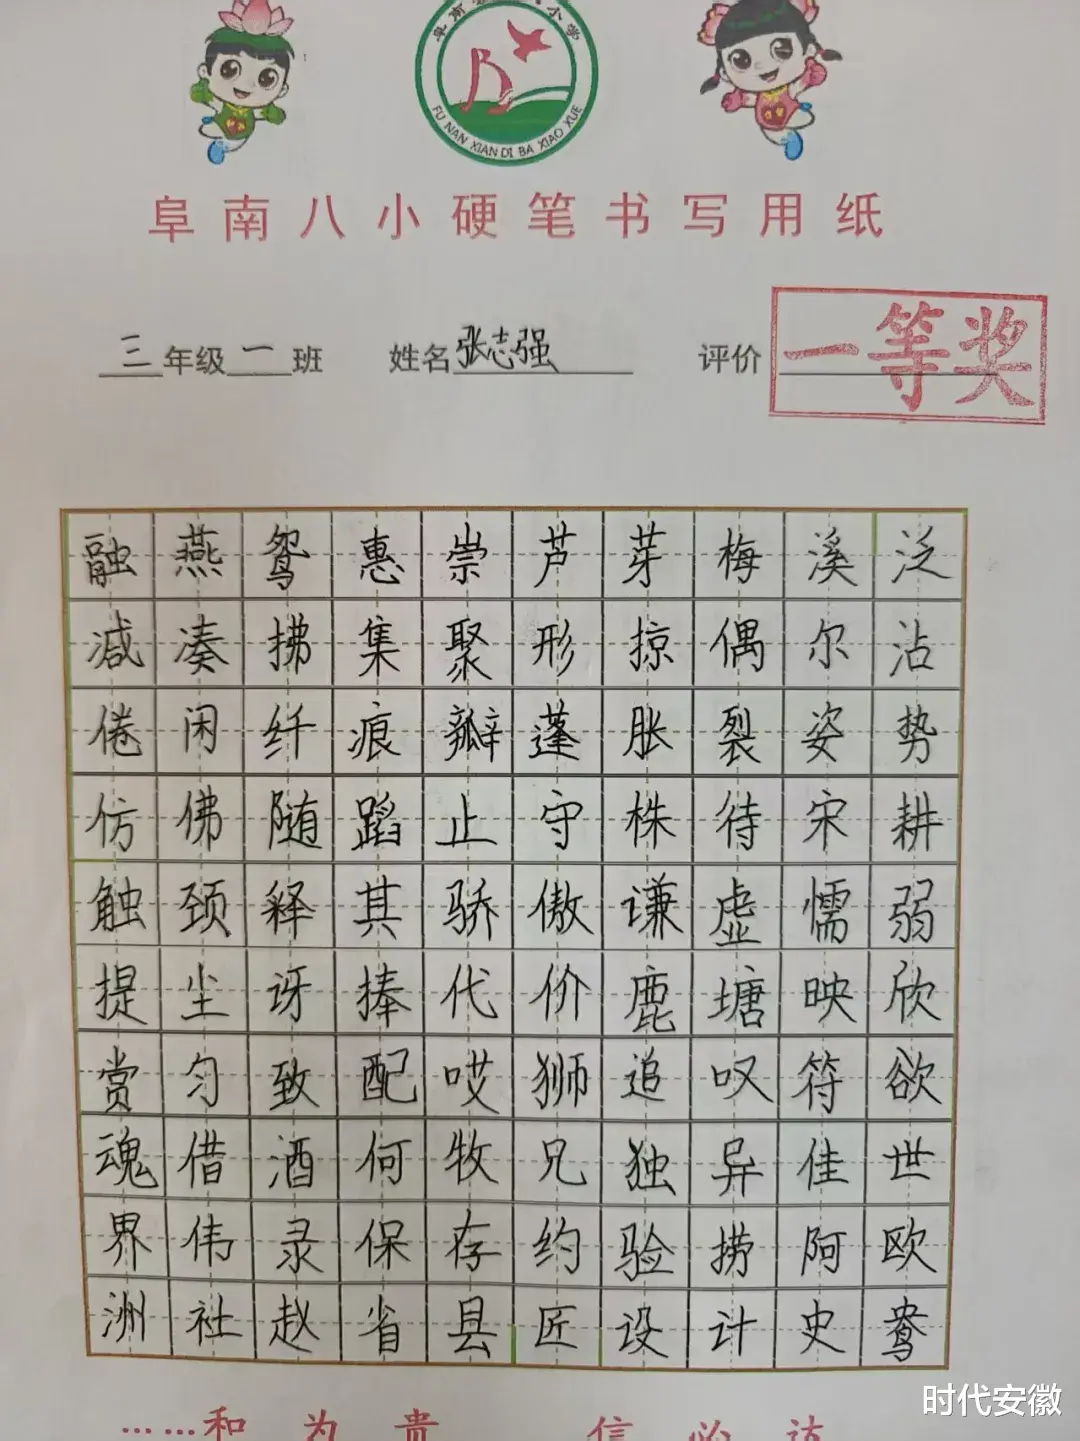 FU NAN XIAN DI BA XIAO XUE
阜南八小硬笔书写用纸
三年级一班 姓名张志强 评价 一等奖
融燕鸳惠崇芦芽梅溪泛
减凑拂集聚形掠偶尔沾
倦闲纤痕瓣蓬胀裂姿势
仿佛随蹈止守株待宋耕
触颈释其骄傲谦虚懦弱
提尘讶捧代价鹿塘映欣
赏匀致配哎狮追叹符欲
魂借酒何牧兄独异佳世
界伟录保存约验捞阿欧
洲社赵省县匠设计史鸯
……和为贵 信必达
时代安徽